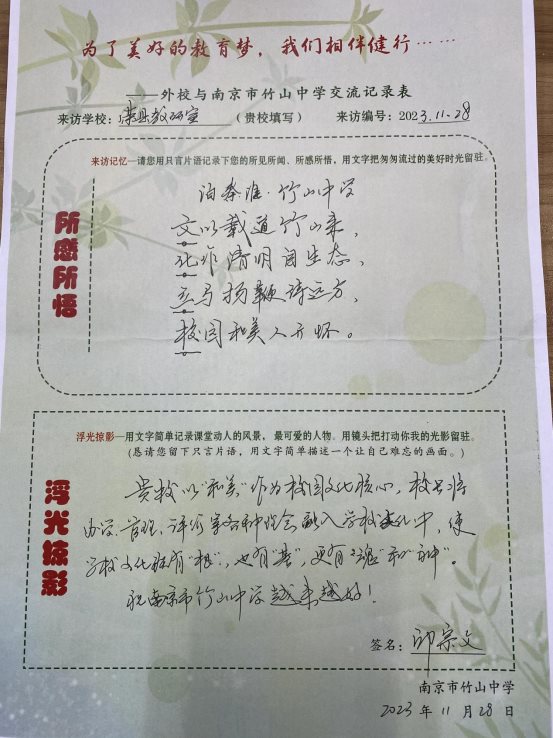 为了美好的教育梦，我们相伴健行……
——外校与南京市竹山中学交流记录表
来访学校：荣县教研室（贵校填写） 来访编号：2023.11.28
来访记忆—请您用只言片语记录下您的所见所闻、所感所悟，用文字把匆匆流过的美好时光留驻。
所感所悟
泊秦淮·竹山中学
文以载道竹山来，
化作清明自生态，
立马扬鞭诗远方，
校园和美人开怀。
浮光掠影—用文字简单记录课堂动人的风景，最可爱的人物。用镜头把打动你我的光影留驻。
（恳请您留下只言片语，用文字简单描述一个让自己难忘的画面。）
浮光掠影
贵校以“和美”作为校园文化核心，校长将
办学、管理、评价等各种理念融入学校文化中，使
学校文化既有“根”，也有“基”，更有“魂”和“神”。
祝南京市竹山中学越来越好！
签名：邱宗文
南京市竹山中学
2023 年 11 月 28 日